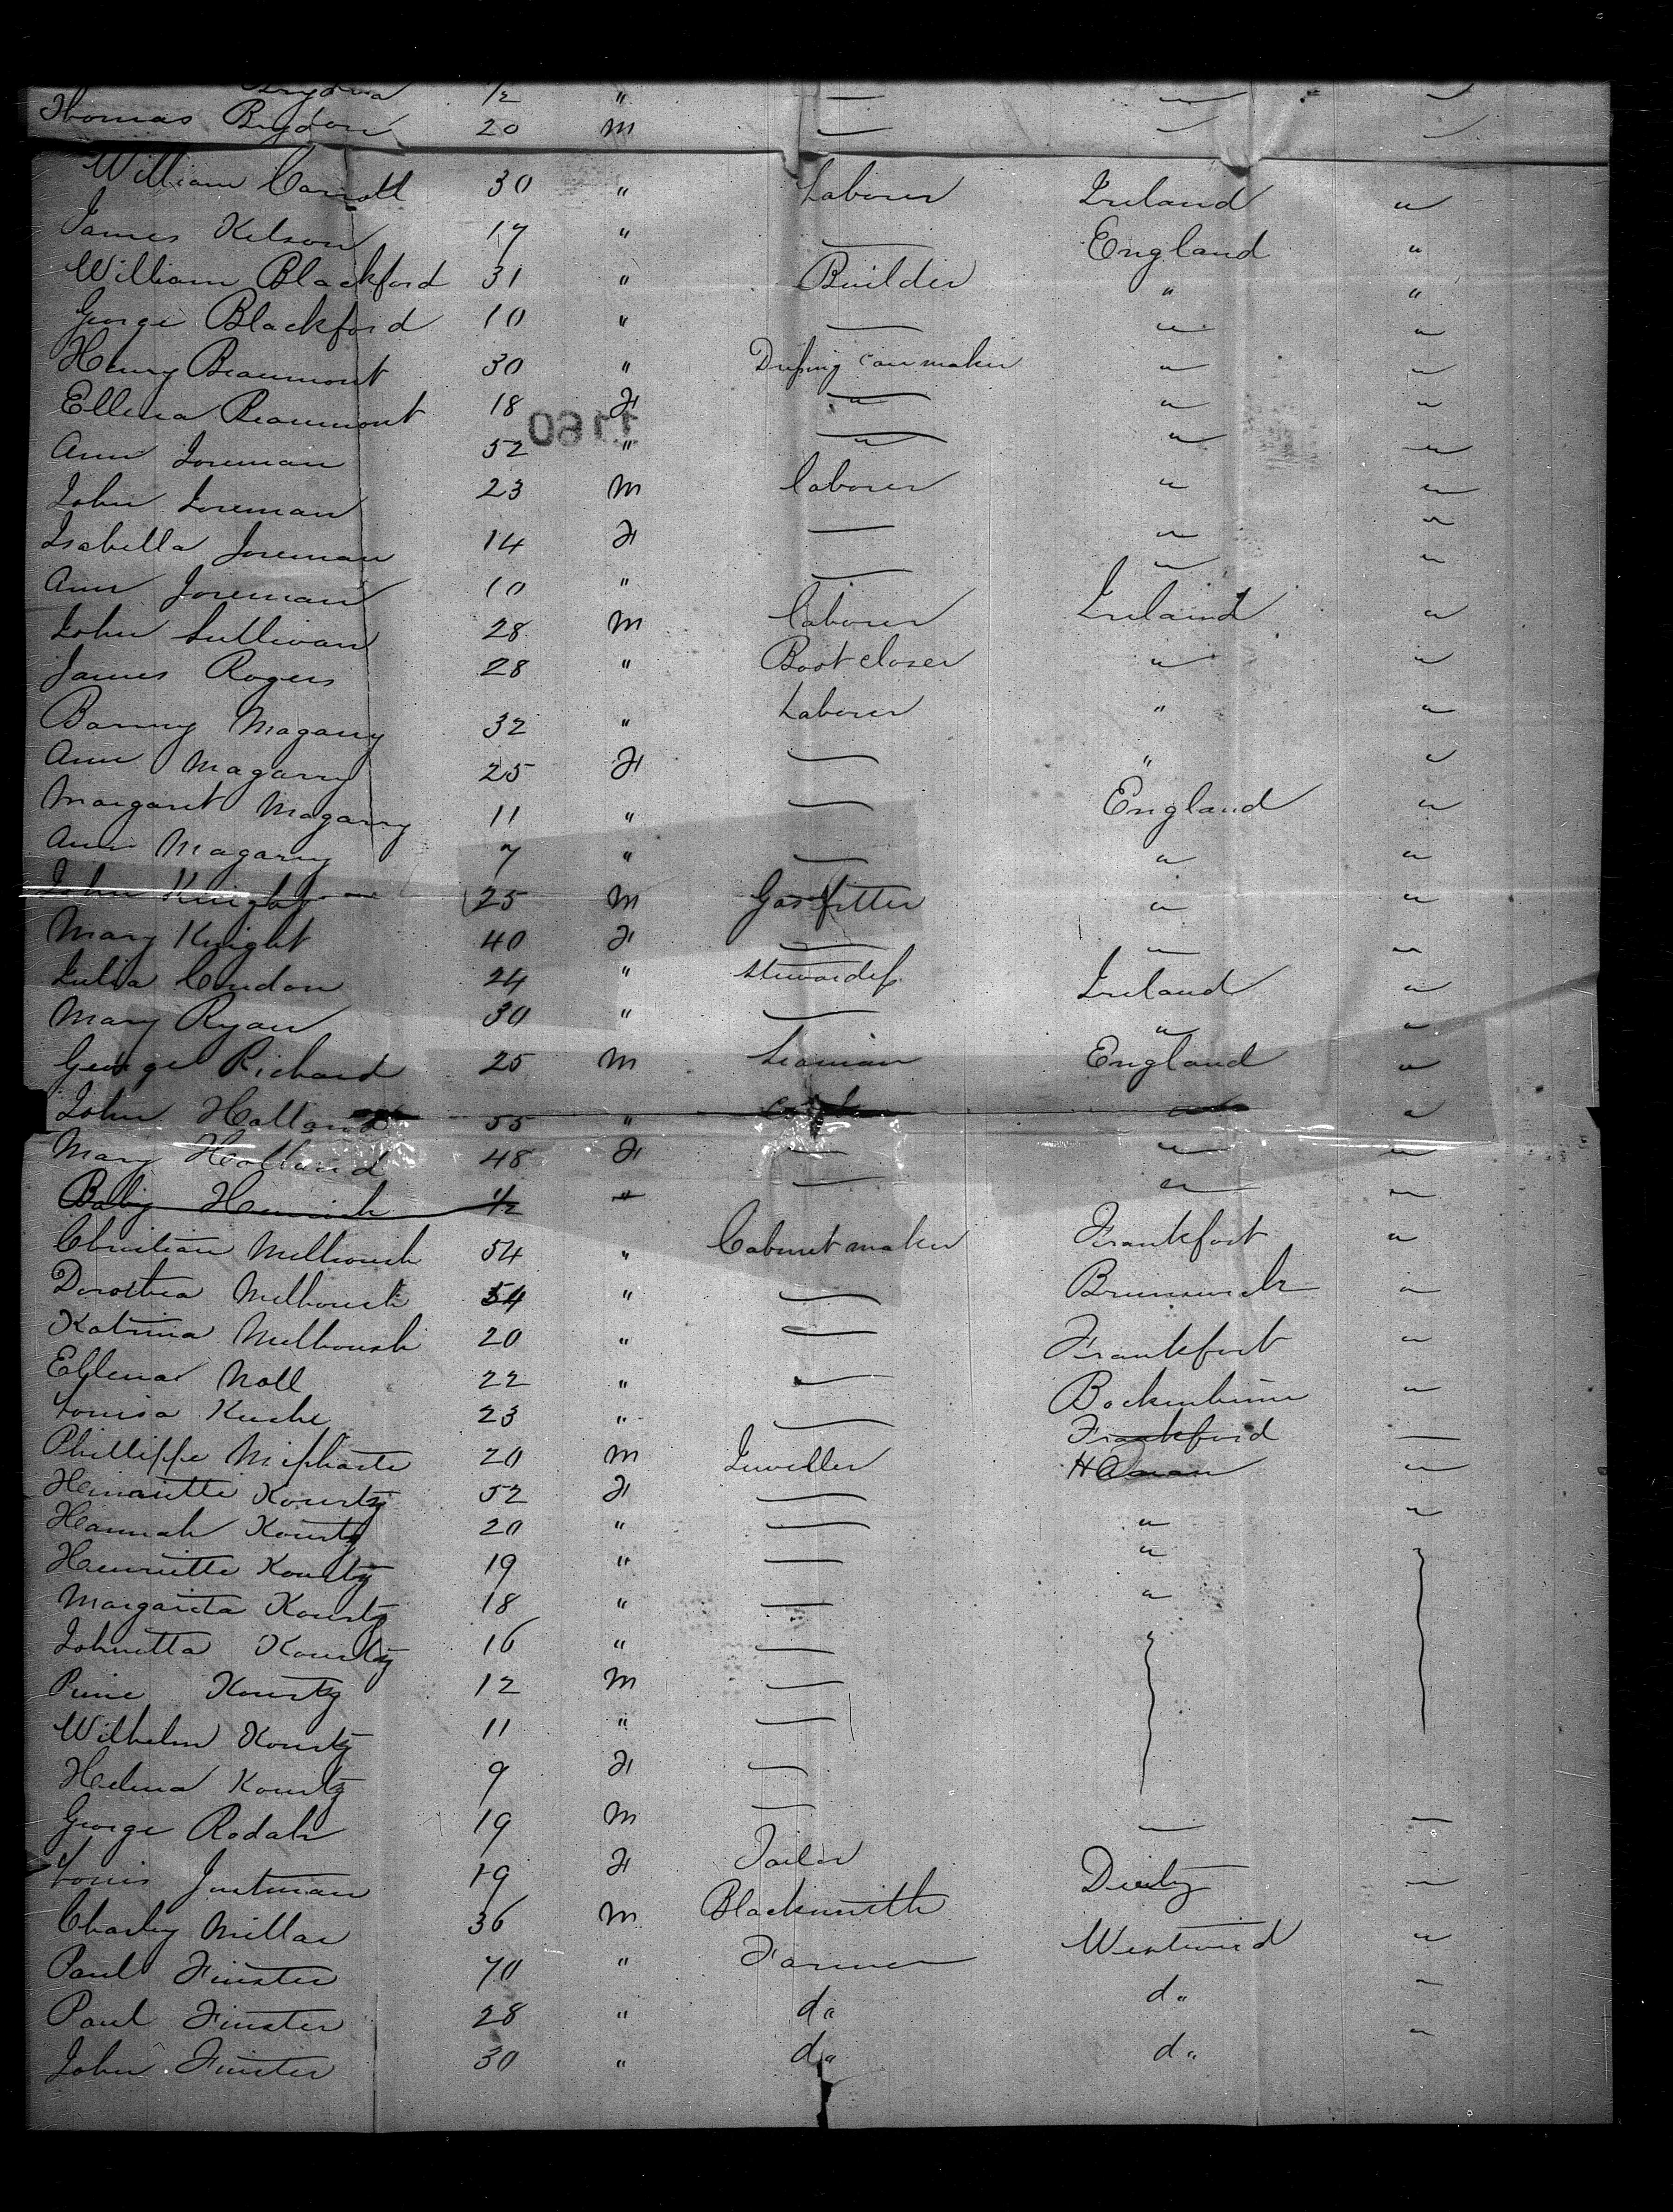 Brydon 1/2 "
Thomas Brydon 20 M
William Carroll 30 " Laborer Ireland "
James Kelson 17 " — England "
William Blackford 31 " Builder " "
George Blackford 10 " — " "
Henry Beaumont 30 " Dressing case maker " "
Ellena Beaumont 18 F " " "
1160
Ann Foreman 52 " " " "
John Foreman 23 M laborer " "
Isabella Foreman 14 F — " "
Ann Foreman 10 " — " "
John Sullivan 28 M laborer Ireland "
James Rogers 28 " Boot closer " "
Barney Magarry 32 " Laborer " "
Ann Magarry 25 F — " "
Margaret Magarry 11 " — England "
Ann Magarry 7 " — " "
John Knight 25 M Gas fitter " "
Mary Knight 40 F — " "
Julia Condon 24 " Stewardess Ireland "
Mary Ryan 30 " — " "
George Richard 25 M Seaman England "
John Holland 55 " " "
Mary Holland 48 F — " "
Baby 1/2 " — " "
Christian Melhoush 54 " Cabinet maker Frankfort "
Dorothea Melhoush 54 " — Brunswick "
Katrina Melhoush 20 " — Frankfort "
Ellena Noll 22 " — Bockenheim "
Louisa 23 " — Frankford —
Phillippe 20 M Jeweller "
Henriette Kourtz 52 F — "
Hannah Kourtz 20 " — "
Henriette Kourtz 19 " — "
Margarita Kourtz 18 " — "
Johnetta Kourtz 16 " —
Kourtz 12 M —
Wilhelm Kourtz 11 " —
Helena Kourtz 9 F —
George Rodah 19 M — — —
Louis Justman 19 F Tailor —
Charley Millar 36 M Blacksmith "
Paul Finster 70 " Farmer "
Paul Finster 28 " do do "
John Finster 30 " do do